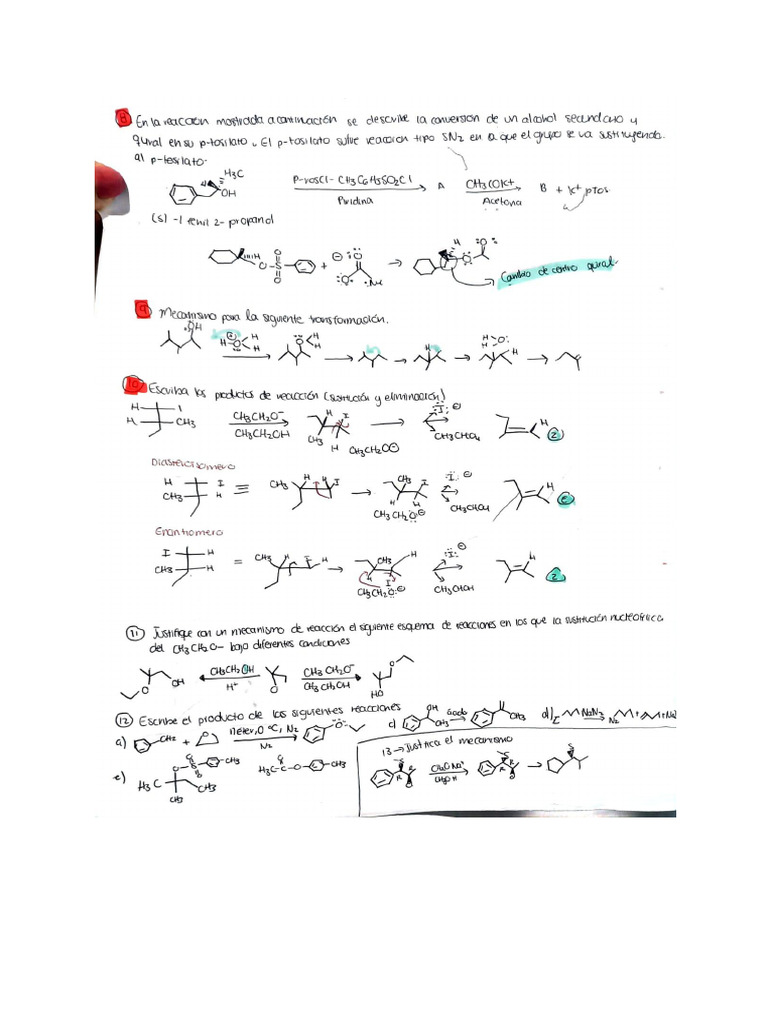 8 En la reacción mostrada a continuación se describe la conversión de un alcohol secundario y
quiral en su p-tosilato. El p-tosilato sufre reacción tipo SN2 en la que el grupo se va sustituyendo
al p-tosilato.
H3C
OH
P-rosCl- CH3C6H5SO2Cl
Piridina
A
CH3COK+
Acetona
B + K+ pTos
(s) -1 fenil 2- propanol
Cambio de centro quiral
9 Mecanismo para la siguiente transformación.
10 Escriba los productos de reacción (sustitución y eliminación)
H I
H CH3
CH3CH2O-
CH3CH2OH
CH3
H
CH3CH2O⊖
H
2
Diastereoisomero
H I
CH3 H
≡
CH3 H I
H
CH3
CH3CH2O⊖
H
e
Enantiomero
I H
CH3 H
=
CH3 H H
CH3 H
I
CH3CH2O:⊖
H
2
11 Justifique con un mecanismo de reacción el siguiente esquema de reacciones en los que la sustitución nucleofílica
del CH3CH2O- bajo diferentes condiciones
O OH
CH3CH2OH
H+
O
CH3CH2O-
CH3CH2OH
O
HO
12 Escribe el producto de las siguientes reacciones
a) CH2 + O
neter, 0 °C, N2
N2
O
c) OH
CH3
CH3
d) I
NaN3
N2
13 → Justifica el mecanismo
S R
R
CH3O Na+
CH3OH
S R
R
S
e) H3C O-S-O CH3
CH3
CH3
H3C-C-O CH3